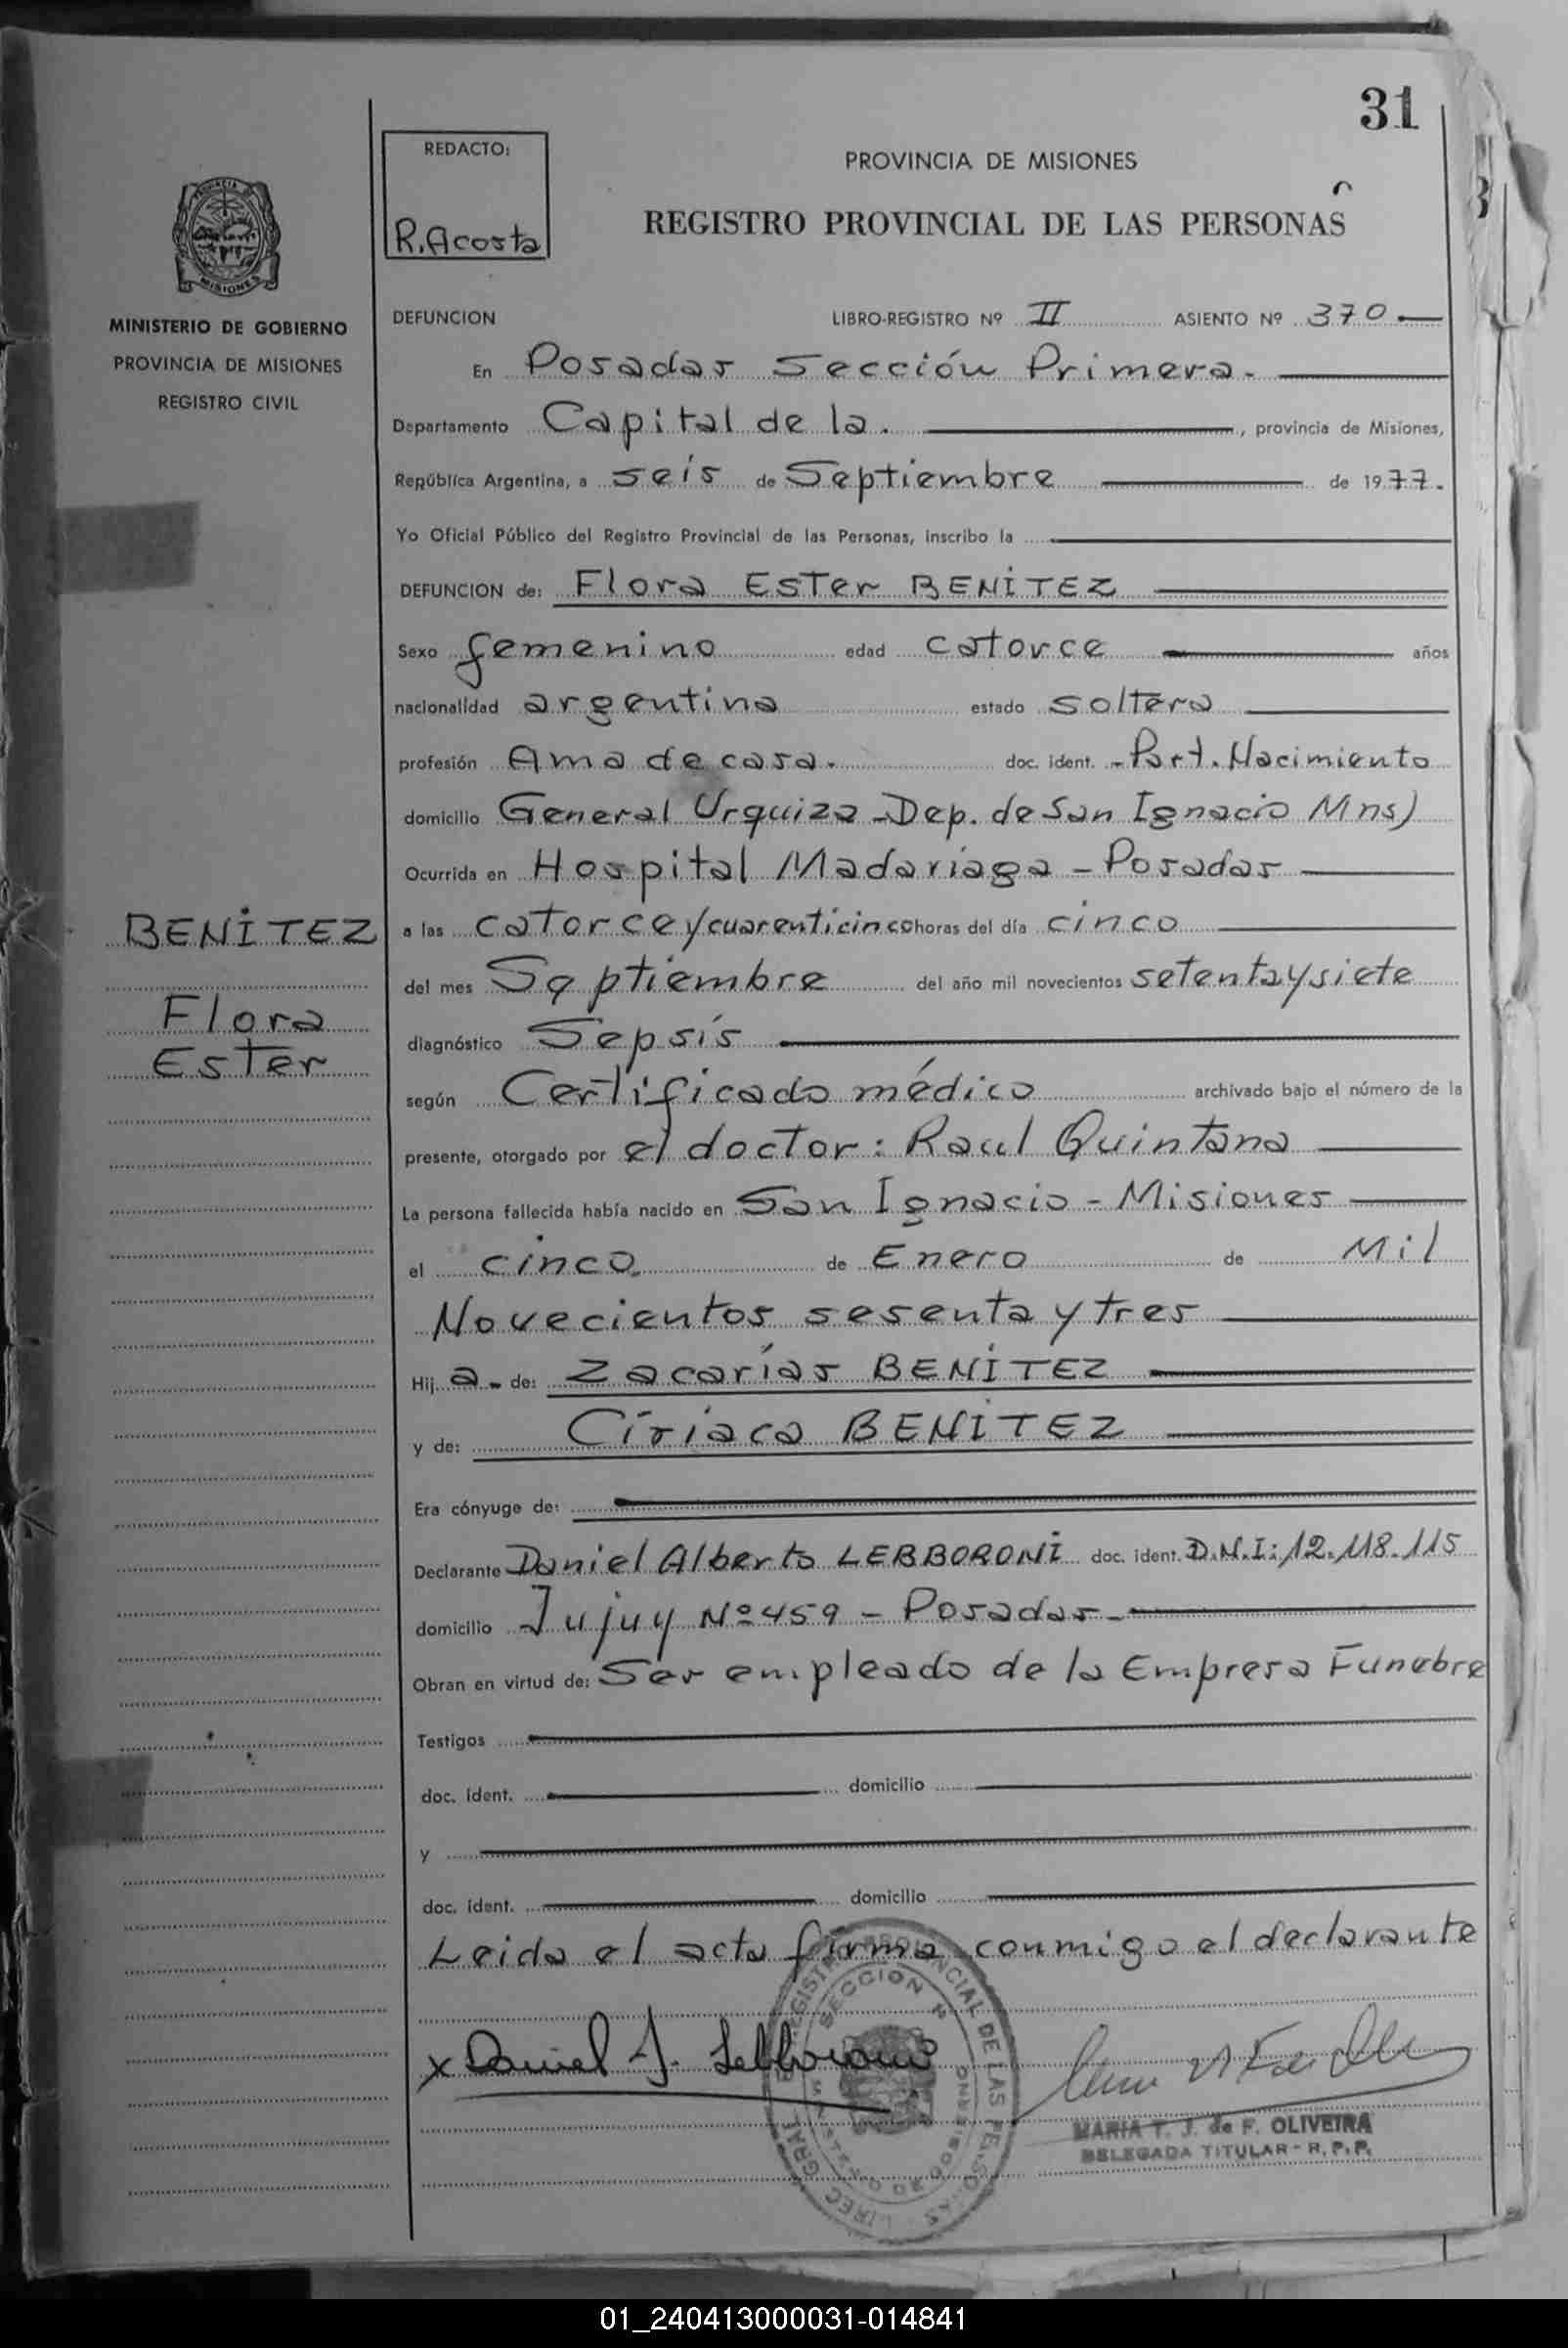 31
REDACTO:
R. Acosta
PROVINCIA DE MISIONES
REGISTRO PROVINCIAL DE LAS PERSONAS
MINISTERIO DE GOBIERNO
PROVINCIA DE MISIONES
REGISTRO CIVIL
DEFUNCION LIBRO-REGISTRO Nº II ASIENTO Nº 370
En Posadas Sección Primera.
Departamento Capital de la. , provincia de Misiones,
República Argentina, a seis de Septiembre de 1977.
Yo Oficial Público del Registro Provincial de las Personas, inscribo la
DEFUNCION de: Flora Ester BENITEZ
Sexo femenino edad catorce años
nacionalidad argentina estado soltera
profesión Ama de casa. doc. ident. Part. Nacimiento
domicilio General Urquiza - Dep. de San Ignacio Mns)
Ocurrida en Hospital Madariaga - Posadas
BENITEZ
Flora
Ester
a las catorce y cuarenticinco horas del día cinco
del mes Septiembre del año mil novecientos setenta y siete
diagnóstico Sepsis
según Certificado médico archivado bajo el número de la
presente, otorgado por el doctor: Raul Quintana
La persona fallecida había nacido en San Ignacio - Misiones
el cinco de Enero de Mil
Novecientos sesenta y tres
Hij a. de: Zacarías BENITEZ
y de: Ciriaca BENITEZ
Era cónyuge de:
Declarante Daniel Alberto LEBBORONI doc. ident. D.N.I: 12.118.115
domicilio Jujuy Nº 459 - Posadas
Obran en virtud de: Ser empleado de la Empresa Funebre
Testigos
doc. ident. domicilio
y
doc. ident. domicilio
Leida el acta firma conmigo el declarante
x Daniel A. Lebboroni
MARIA T. J. de F. OLIVEIRA
DELEGADA TITULAR - R. P. P.
01_240413000031-014841